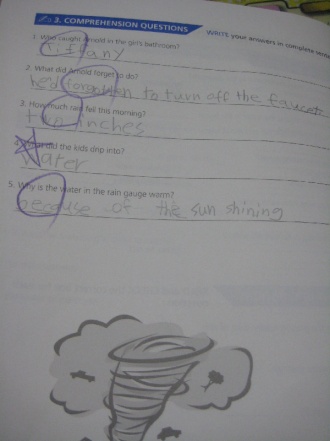 3. COMPREHENSION QUESTIONS WRITE your answers in complete
1. Who caught Arnold in the girl's bathroom?
Tiffany
2. What did Arnold forget to do?
he'd forgotten to turn off the faucet
3. How much rain fell this morning?
two inches
4. What did the kids drip into?
water
5. Why is the water in the rain gauge warm?
because of the sun shining